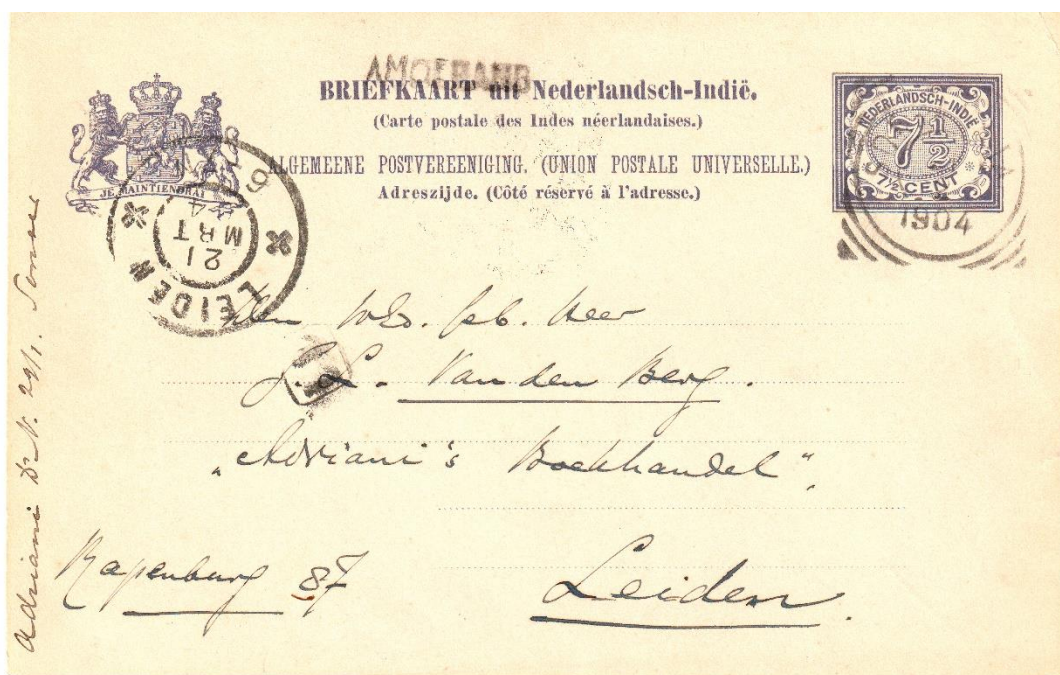 AMOERANG
BRIEFKAART uit Nederlandsch-Indië.
(Carte postale des Indes néerlandaises.)
ALGEMEENE POSTVEREENIGING. (UNION POSTALE UNIVERSELLE.)
Adreszijde. (Côté réservé à l'adresse.)
JE MAINTIENDRAI
NEDERLANDSCH-INDIË
7 1/2
7½ CENT
1904
LEIDEN
21
MRT
Den Heer
J. L. Van den Berg.
"Adriani's Boekhandel".
Rapenburg 87
Leiden.
Adriani Dr. N. 29/1.